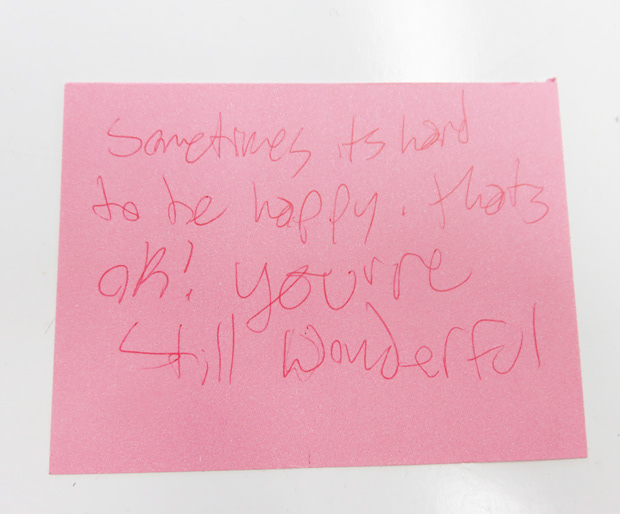 Sometimes its hard
to be happy. thats
ok! you're
still wonderful